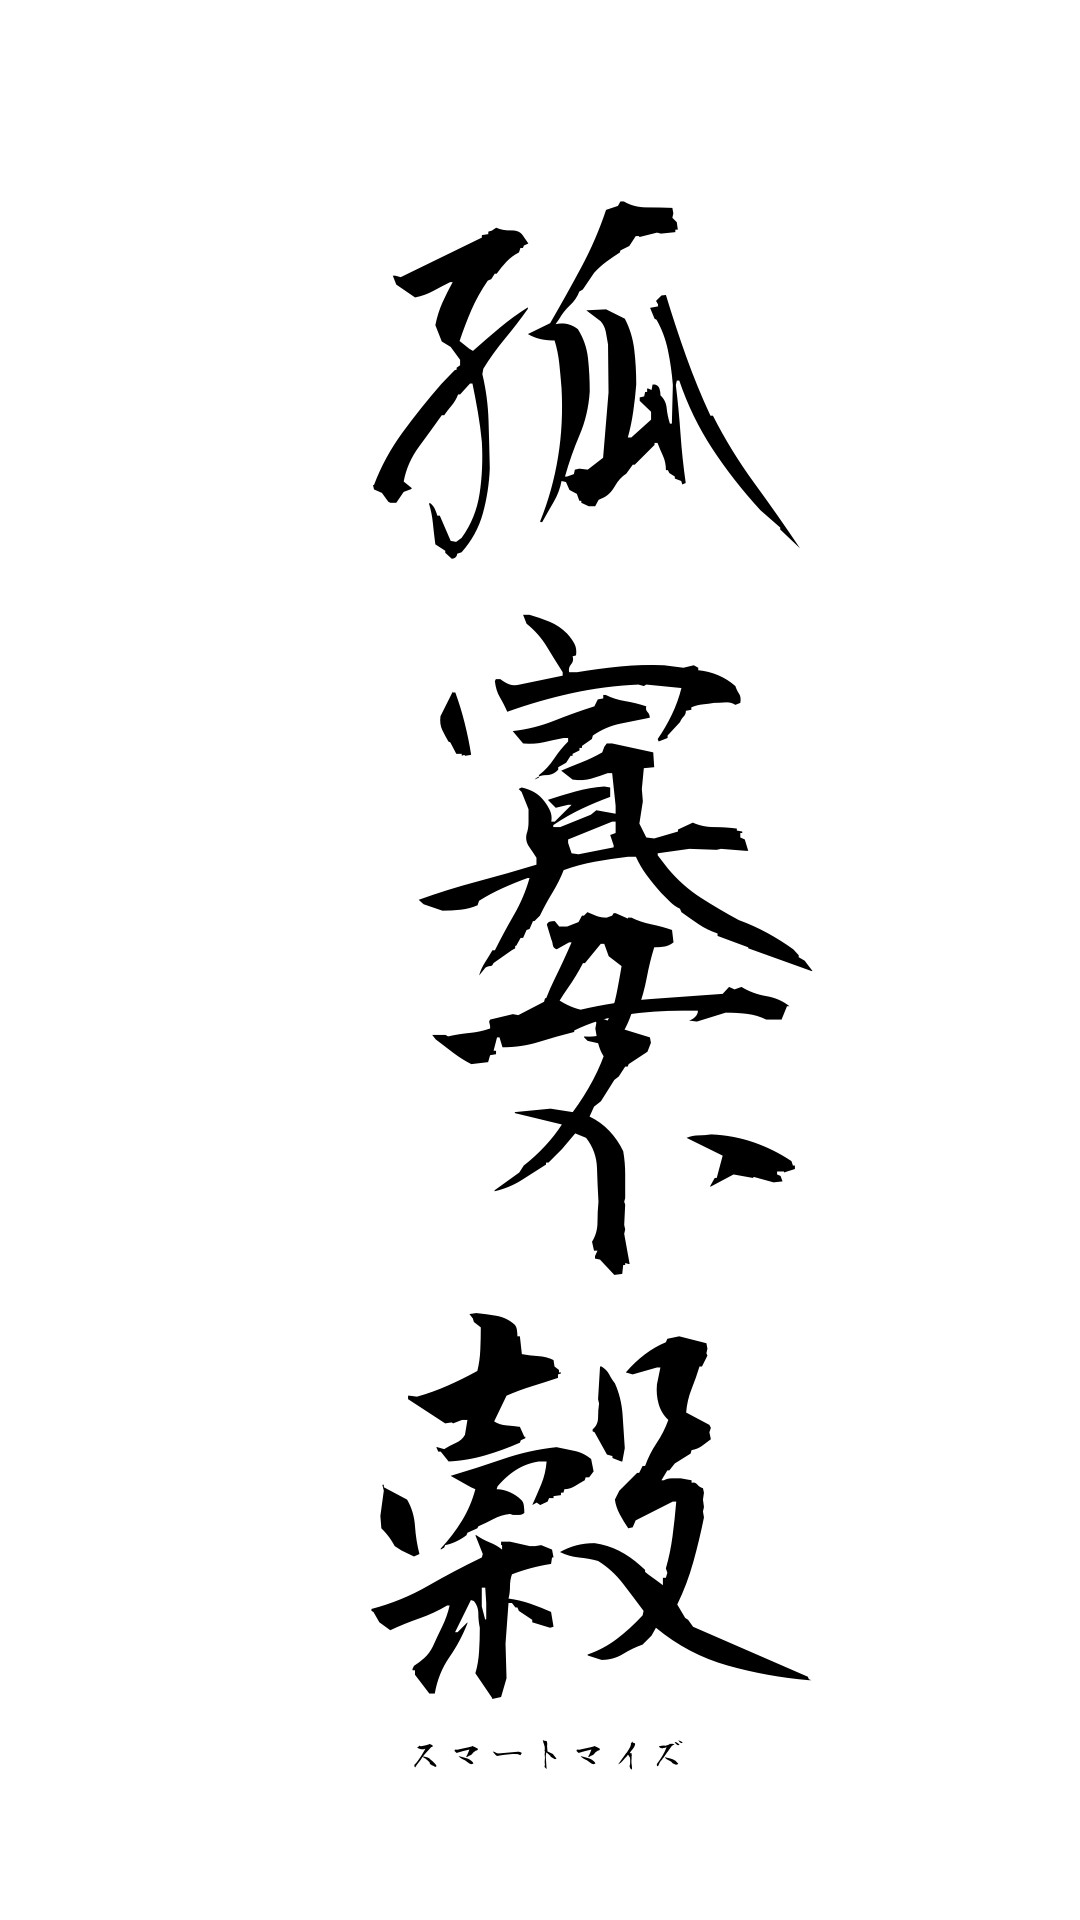 孤寡穀
スマートマイズ